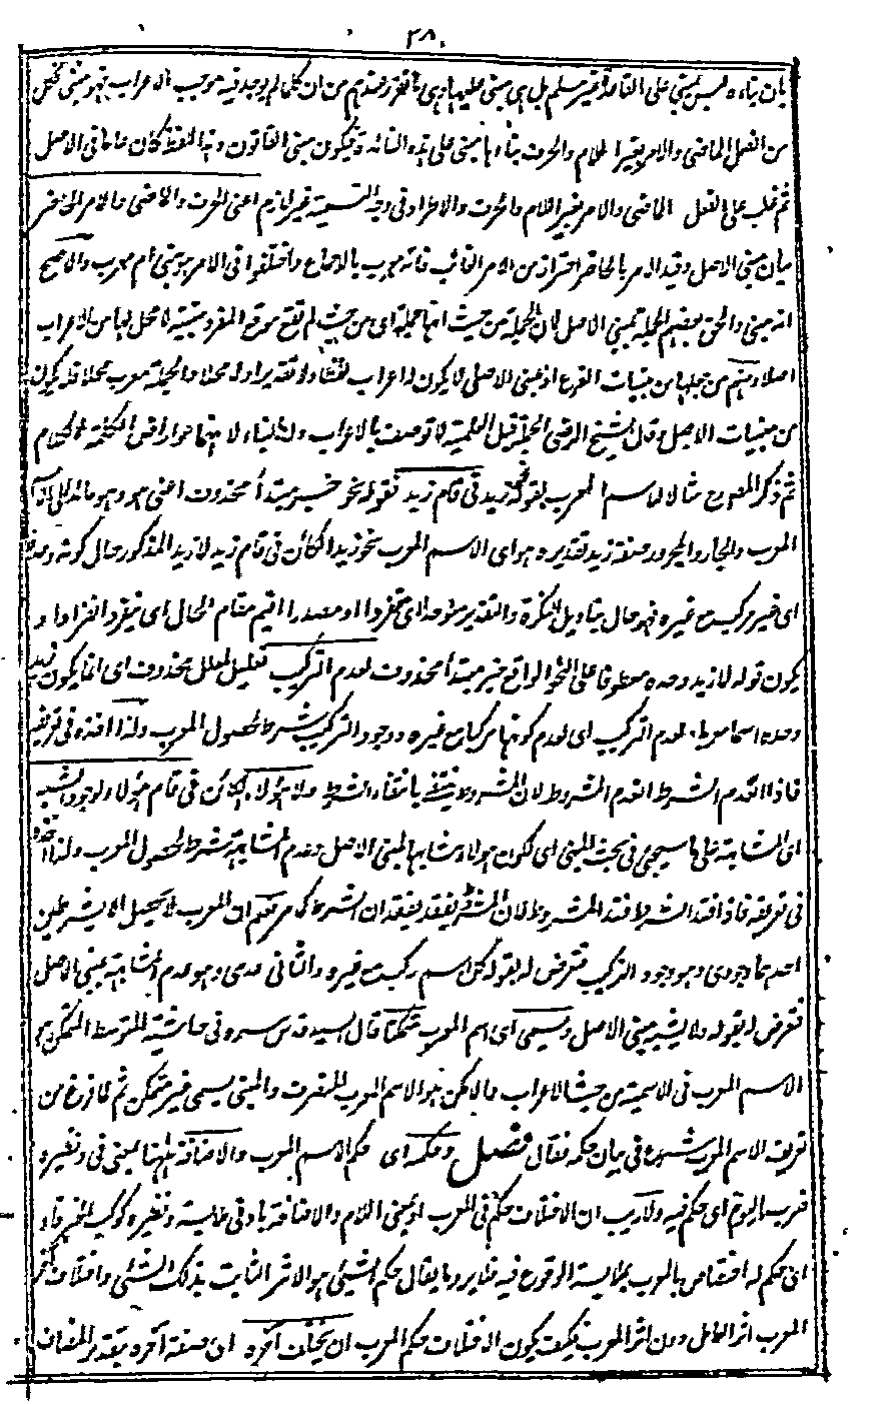 ٢٨
بان بناءه ليس بمبنى على القاعدة غير مسلم بل هى مبنى عليها وهى ما تقرر عندهم من ان كل ما لم يوجد فيه موجب الاعراب فهو مبنى
من الفعل الماضى والامر بغير اللام والحرف بناءها مبنى على هذه القانون
ثم غلب على الفعل الماضى والامر بغير اللام والحرف والاطراد فى وجه التسمية غير لازم اعنى الحرف والماضى والامر الحاضر
بيان مبنى الاصل وقيد الامر بالحاضر احتراز من الامر الغائب فانه معرب بالاجماع واختلفوا فى الامر هو مبنى ام معرب والاصح
انه مبنى والحق بعضهم الجملة بمبنى الاصل لان الجملة من حيث انها جملة اى من حيث لم تقع موقع المفرد مبنية لا محل لها من الاعراب
اصلا ومنهم من جعلها من مبنيات الفرع اذ مبنى الاصل لا يكون له اعراب لفظا ولا تقديرا ولا محلا والجملة معرب محلا فلا يكون
من مبنيات الاصل وقال الشيخ الرضى الجملة قبل العلمية لا توصف بالاعراب ولا بالبناء لانهما من عوارض الكلمة لا الكلام
ثم ذكر المصنف رح مثالا للاسم المعرب بقوله نحو زيد فى قام زيد فقوله نحو خبر مبتدأ محذوف اعنى هو وهو عائد الى الاسم
المعرب والجار والمجرور صفة زيد تقديره هو اى الاسم المعرب نحو زيد الكائن فى قام زيد لا زيد المذكور حال كونه وحده
اى غير مركب مع غيره فهو حال بتاويل النكرة والتقدير متوحدا اى متفردا او مصدر اقيم مقام الحال اى ينفرد انفرادا و
يكون قوله لا زيد وحده معطوفا على النحو الواقع خبر مبتدأ محذوف لعدم التركيب تعليل لمعلل محذوف اى انما يكون زيد
وحده اسما معربا لعدم التركيب اى لعدم كونها مركبا مع غيره ووجود التركيب شرط لحصول المعرب ولذا اخذه فى تعريفه
فاذا انعدم الشرط انعدم المشروط لان المشروط ينتفى بانتفاء الشرط ولا هؤلاء الكائن فى قام هؤلاء لوجود الشبه
اى المشابهة على ما سيجئ فى بحث المبنى اى لكون هؤلاء مشابها لمبنى الاصل وعدم المشابهة شرط لحصول المعرب ولذا اخذه
فى تعريفه فاذا فقد الشرط فقد المشروط لان المشروط يفقد بفقدان الشرط كما مر فعلم ان المعرب لا يحصل الا بشرطين
احدهما وجودى وهو وجود التركيب فتعرض له بقوله كل اسم ركب مع غيره والثانى عدمى وهو عدم المشابهة بمبنى الاصل
فتعرض له بقوله ولا يشبه مبنى الاصل ويسمى اى اسم المعرب متمكنا قال السيد قدس سره فى حاشية المتوسط المتمكن هو
الاسم المعرب فى الاسمية من حيث الاعراب فالامكن هو الاسم المعرب المنصرف والمبنى يسمى غير متمكن ثم لما فرغ من
تعريف الاسم المعرب شرع فى بيان حكمه فقال فصل وحكمه اى حكم الاسم المعرب والاضافة ههنا بمعنى فى ونظيره
ضرب اليوم اى حكم فيه ولا ريب ان الاختلاف حكم فى المعرب او بمعنى اللام والاضافة بادنى ملابسة ونظيره كوكب الخرقاء
اى حكم له اختصاص بالمعرب بملابسة الوقوع فيه فلا يرد ما يقال حكم الشئ هو الاثر الثابت بذلك الشئ واختلاف آخر
المعرب اثر العامل دون اثر المعرب فكيف يكون الاختلاف حكم المعرب ان يختلف آخره اى صفة آخره بتقدير المضاف